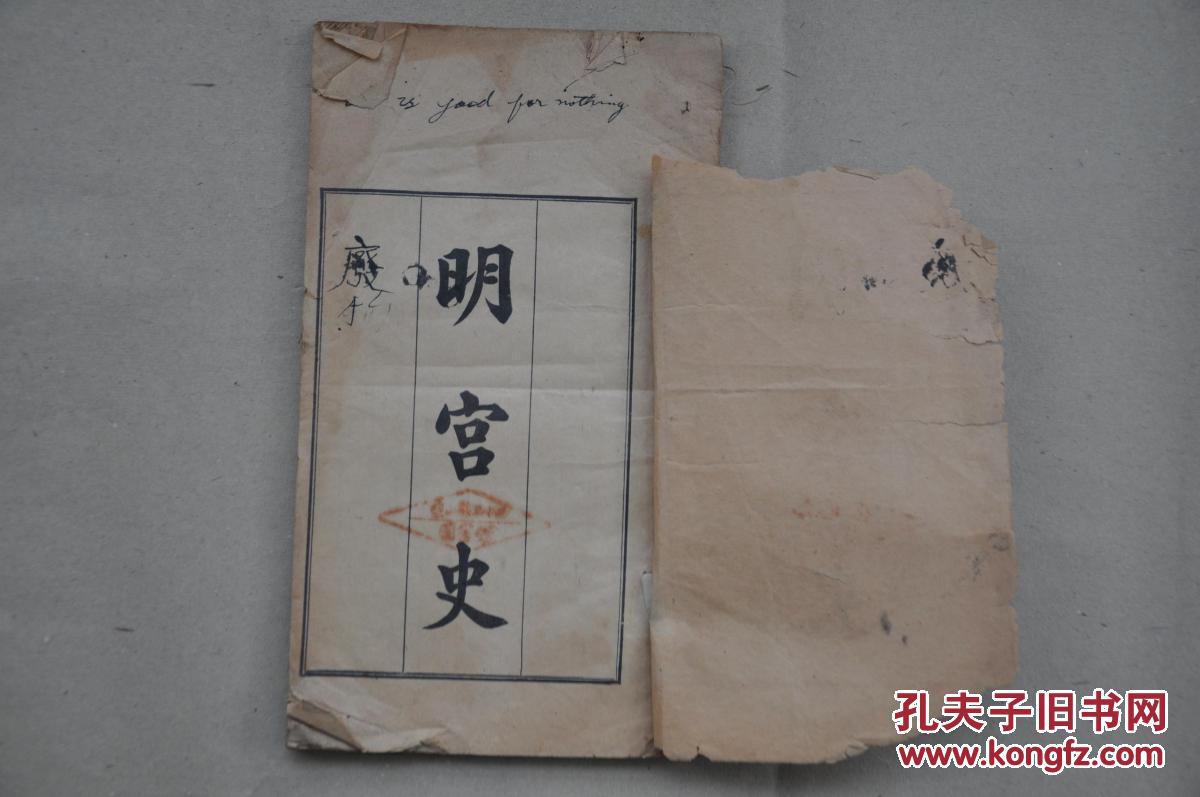 is good for nothing
明宫史
廢
孔夫子旧书网
www.kongfz.com